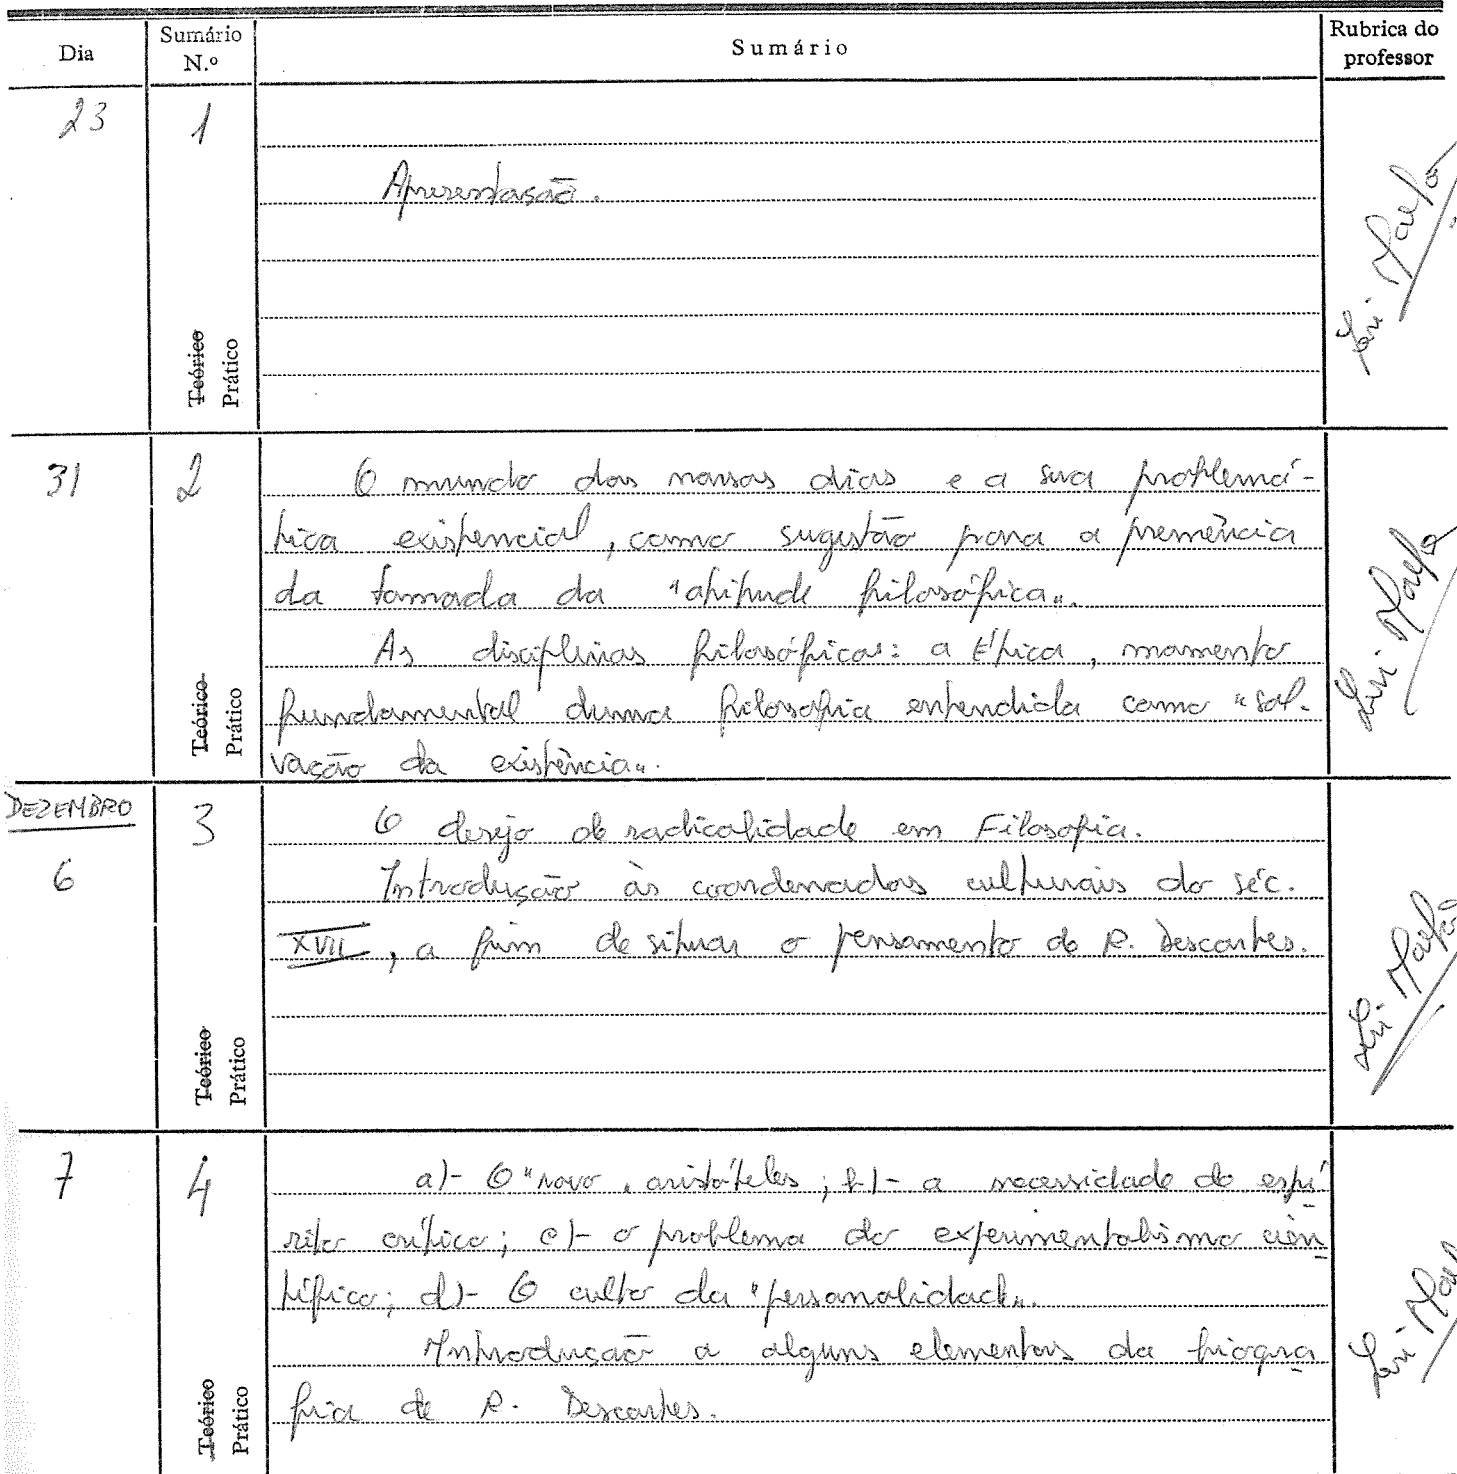 Dia
Sumário
N.º
Sumário
Rubrica do
professor
23
1
Apresentação.
Teórico
Prático
31
2
O mundo dos nossos dias e a sua problemá-
tica existencial, como sugestão para a premência
da tomada da "atitude filosófica".
As disciplinas filosóficas: a Ética, momento
fundamental duma filosofia entendida como "sal-
vação da existência".
Teórico
Prático
DEZEMBRO
6
3
O desejo de radicalidade em Filosofia.
Introdução às coordenadas culturais do séc.
XVII, a fim de situar o pensamento de R. Descartes.
Teórico
Prático
7
4
a)- O "novo" aristóteles; b)- a necessidade do espí
rito crítico; c)- o problema do experimentalismo cien
tífico; d)- O culto da "personalidade".
Introdução a alguns elementos da biogra
fia de R. Descartes.
Teórico
Prático